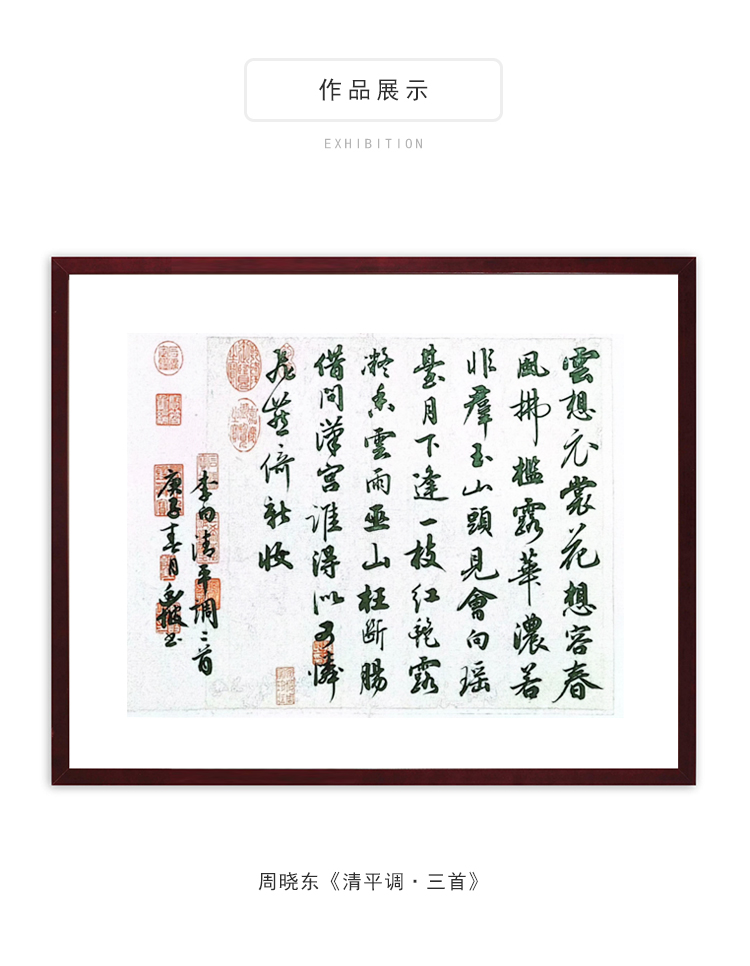 作品展示
EXHIBITION
雲想衣裳花想容春
風拂檻露華濃若
非羣玉山頭見會向瑶
臺月下逢一枝红艳露
凝香雲雨巫山枉断腸
借問漢宫誰得似可憐
飛燕倚新妝
李白清平調二首
庚子春月
周晓东《清平调·三首》